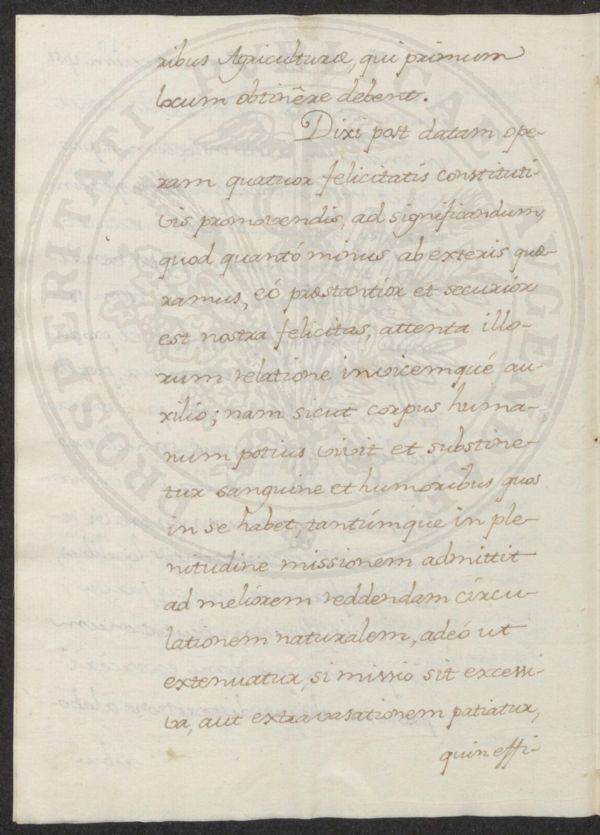 ribus Agriculturæ, qui primum
locum obtinêre debent.
Dixi post datam ope-
ram quatuor felicitatis constituti-
vis promovendis, ad significandum,
quod quantó minus ab exteris quæ-
ramus, eó præstantior et securior
est nostra felicitas, attenta illo-
rum relatione invicemqué au-
xilio; nam sicut corpus huma-
num potius vivit et substine-
tur sanguine et humoribus quos
in se habet, tantúmque in ple-
nitudine missionem admittit
ad meliorem reddendam circu-
lationem naturalem, adeó ut
extenuatur, si missio sit excessi-
va, aut extravasationem patiatur,
quin effi-
PROSPERITATI PUBLICAE AUGENDAE